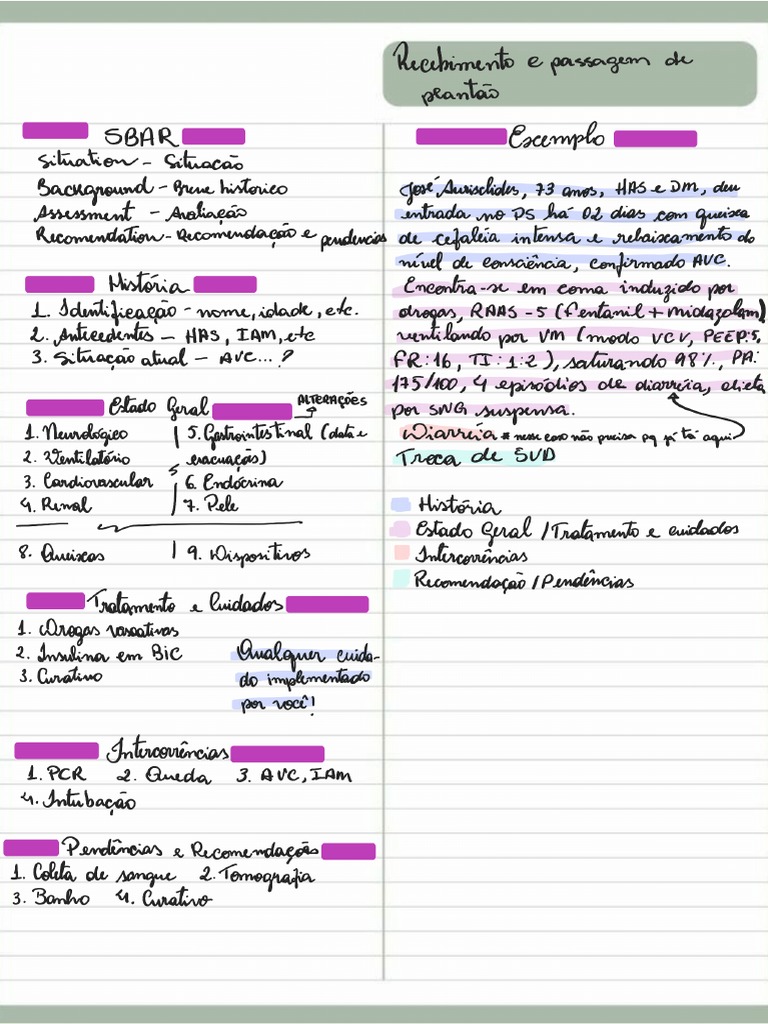 Recebimento e passagem de
plantão
SBAR
Situation - Situação
Background - Breve histórico
Assessment - Avaliação
Recomendation - Recomendação e pendencias
História
1. Identificação - nome, idade, etc.
2. Antecedentes - HAS, IAM, etc
3. Situação atual - AVC...?
Estado Geral
ALTERAÇÕES
1. Neurológico
2. Ventilatório
3. Cardiovascular
4. Renal
5. Gastrointestinal (data e
evacuação)
6. Endócrina
7. Pele
8. Queixas
9. Dispositivos
Tratamento e Cuidados
1. Drogas vasoativas
2. Insulina em BIC
3. Curativo
Qualquer cuida-
do implementado
por você!
Intercorrências
1. PCR 2. Queda 3. AVC, IAM
4. Intubação
Pendências e Recomendações
1. Coleta de sangue 2. Tomografia
3. Banho 4. Curativo
Exemplo
José Aurisclides, 73 anos, HAS e DM, deu
entrada no PS há 02 dias com queixa
de cefaleia intensa e rebaixamento do
nível de consciência, confirmado AVC.
Encontra-se em coma induzido por
drogas, RAAS -5 (fentanil + midazolam)
ventilando por VM (modo VCV, PEEP:5,
FR:16, TI:1:2), saturando 98%, PA:
175/100, 4 episódios de diarréia, dieta
por SNG suspensa.
Diarréia * nesse caso não precisa pq já tá aqui
Troca de SVD
História
Estado Geral / Tratamento e cuidados
Intercorrências
Recomendação / Pendências